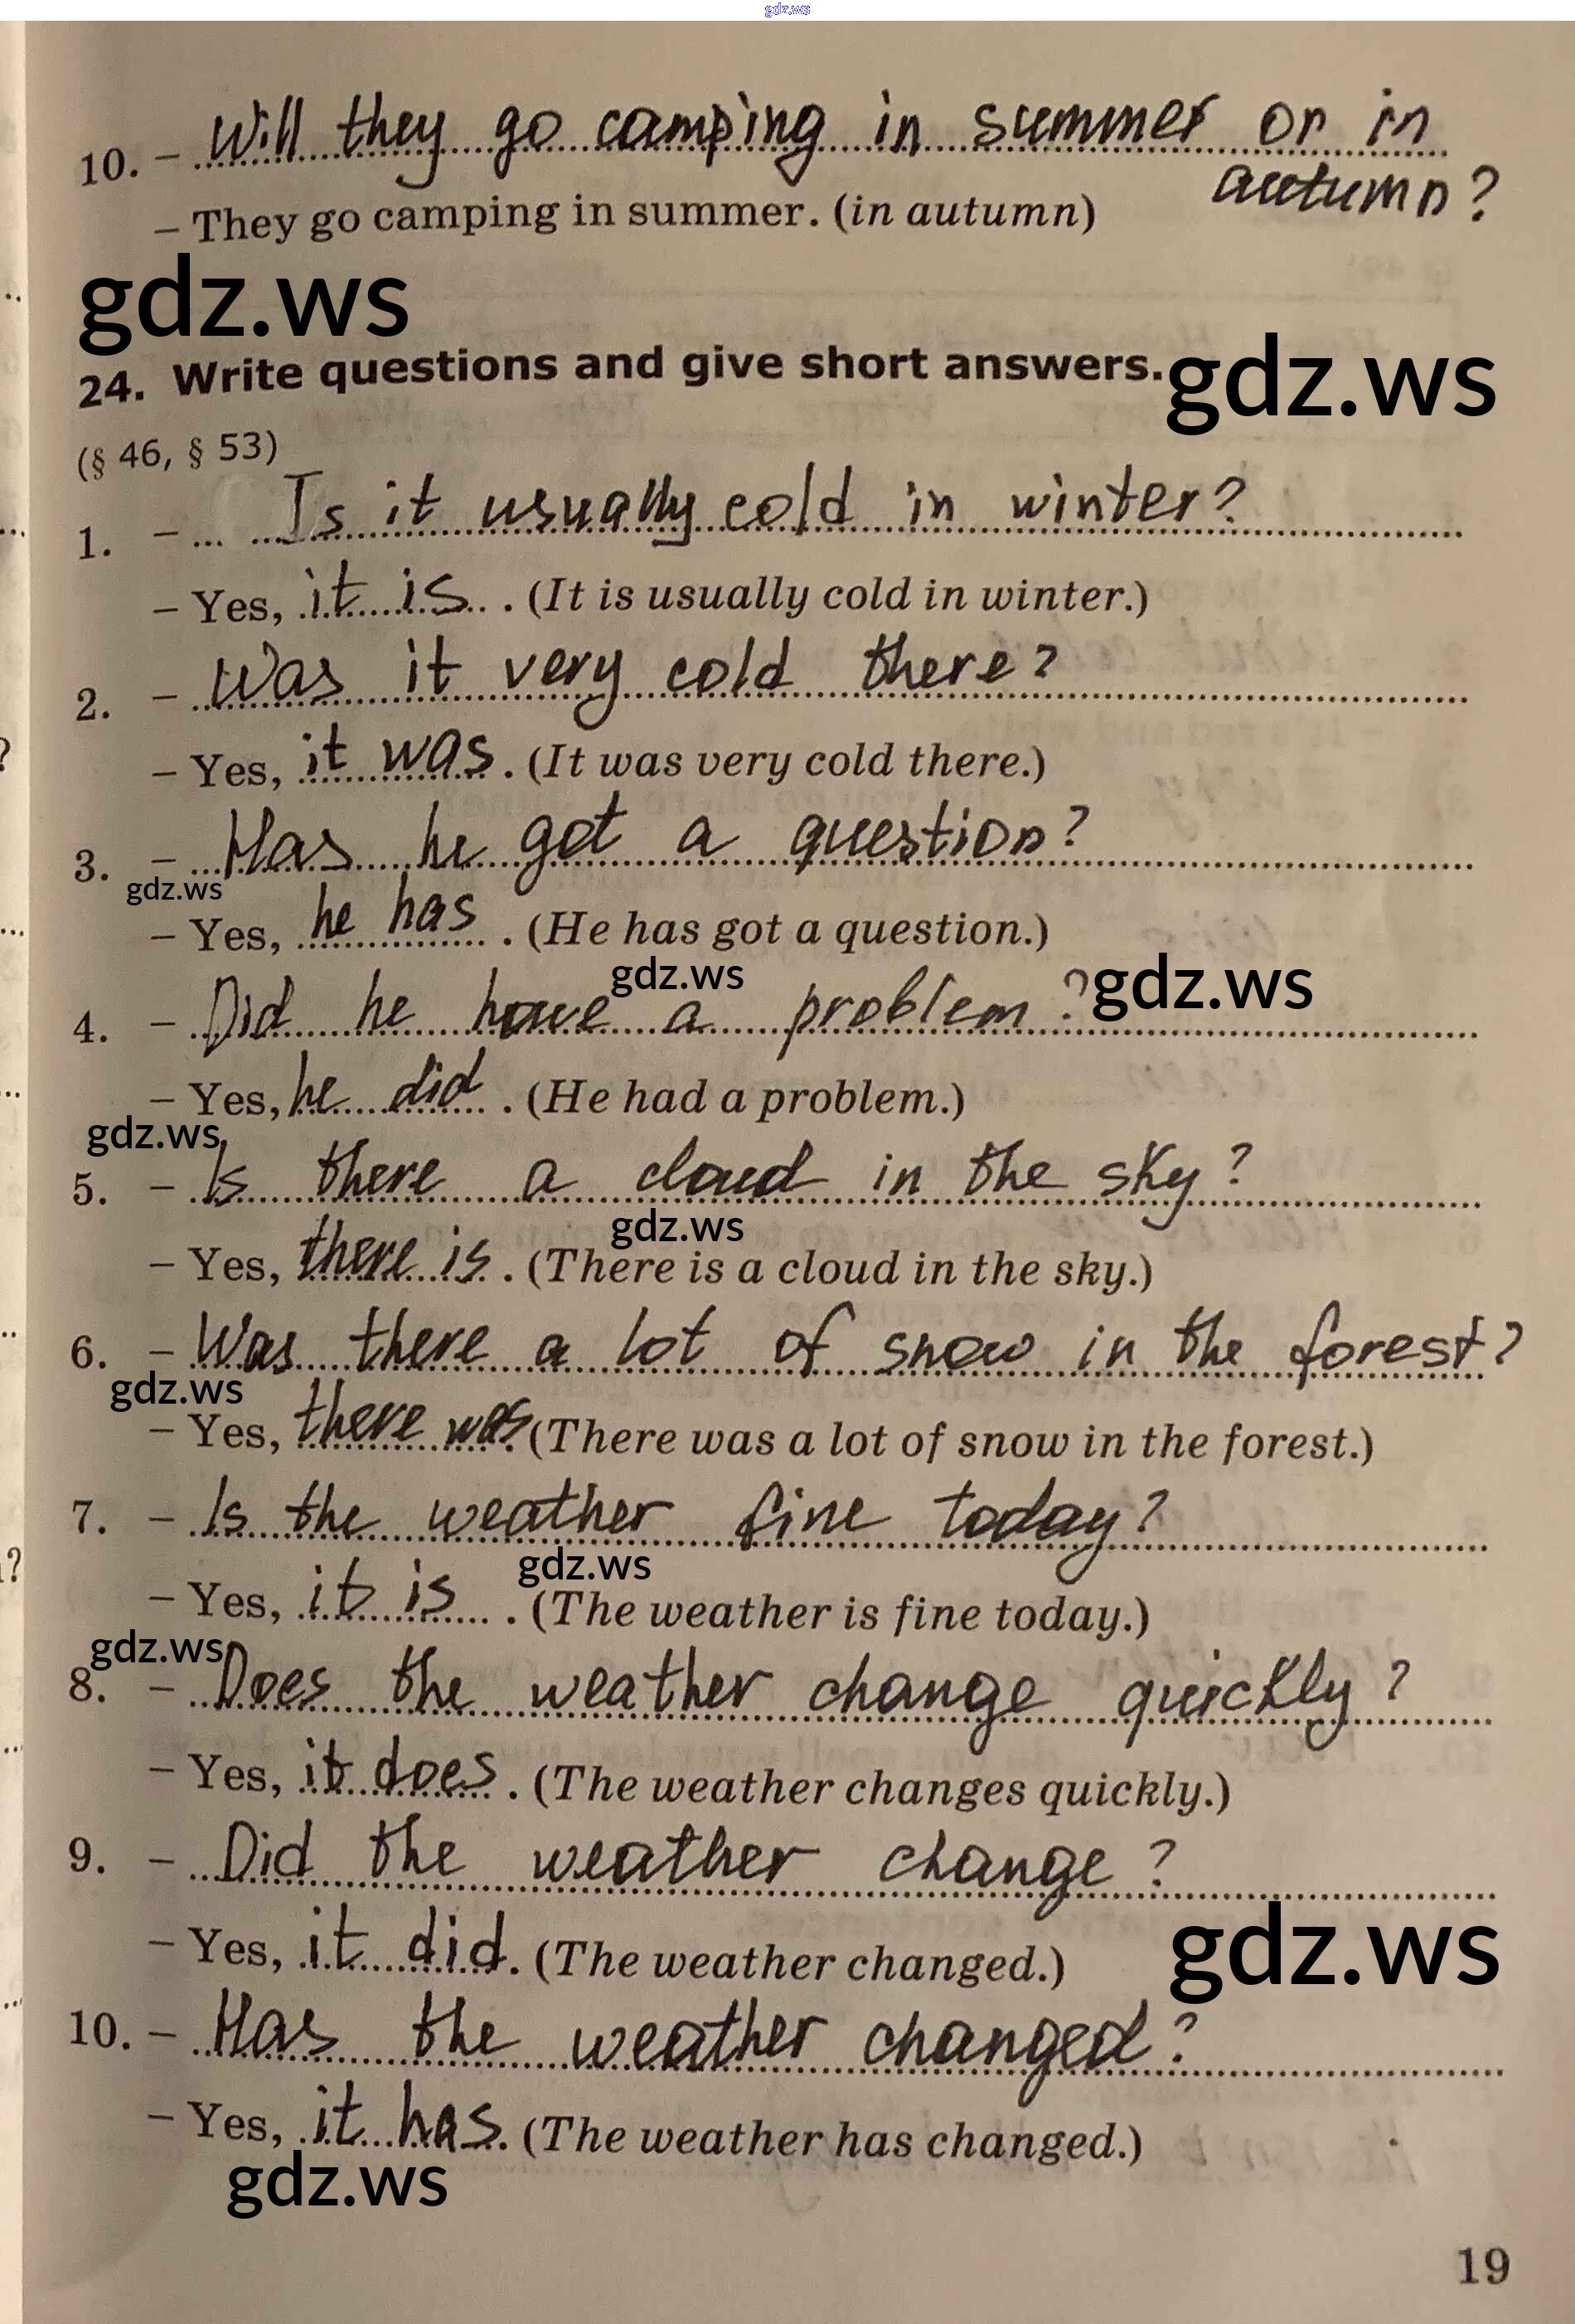 gdz.ws
10. – Will they go camping in summer or in
autumn?
– They go camping in summer. (in autumn)
gdz.ws
24. Write questions and give short answers.
gdz.ws
(§ 46, § 53)
1. – Is it usually cold in winter?
– Yes, it is. (It is usually cold in winter.)
2. – Was it very cold there?
– Yes, it was. (It was very cold there.)
3. – Has he got a question?
gdz.ws
– Yes, he has. (He has got a question.)
gdz.ws
4. – Did he have a problem?
gdz.ws
– Yes, he did. (He had a problem.)
gdz.ws
5. – Is there a cloud in the sky?
gdz.ws
– Yes, there is. (There is a cloud in the sky.)
6. – Was there a lot of snow in the forest?
gdz.ws
– Yes, there was. (There was a lot of snow in the forest.)
7. – Is the weather fine today?
gdz.ws
– Yes, it is. (The weather is fine today.)
gdz.ws
8. – Does the weather change quickly?
– Yes, it does. (The weather changes quickly.)
9. – Did the weather change?
– Yes, it did. (The weather changed.)
gdz.ws
10. – Has the weather changed?
– Yes, it has. (The weather has changed.)
gdz.ws
19